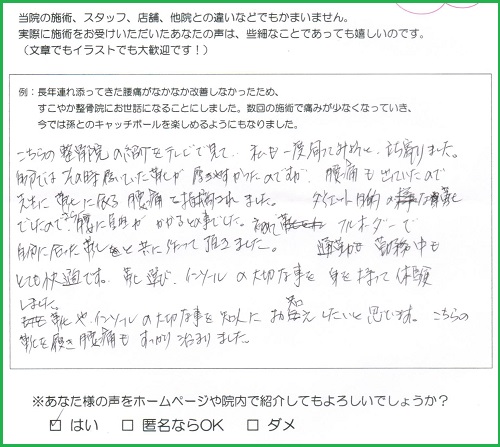 当院の施術、スタッフ、店舗、他院との違いなどでもかまいません。
実際に施術をお受けいただいたあなたの声は、些細なことであっても嬉しいのです。
（文章でもイラストでも大歓迎です！）
例：長年連れ添ってきた腰痛がなかなか改善しなかったため、
すこやか整骨院にお世話になることにしました。数回の施術で痛みが少なくなっていき、
今では孫とのキャッチボールを楽しめるようにもなりました。
こちらの整骨院の紹介をテレビで見て、私も一度伺ってみたいと、訪れました。
自分ではその時履いていた靴が 履きやすかったのですが、腰痛も出ていたので
先生に靴に依る腰痛を指摘されました。 ダイエット目的の靴
でしたので、腰に負担が かかるとの事でした。 フルオーダーで
自分に合った靴を 共に作って頂きました。 通勤も 勤務中も
とても快適です。 靴選び、インソールの大切な事を 身を持って体験
しました。
靴や、インソールの大切な事を知人に お教えしたいと思います。 こちらの
靴を履き腰痛も すっかり治まりました
※あなた様の声をホームページや院内で紹介してもよろしいでしょうか？
☑ はい □ 匿名ならOK □ ダメ